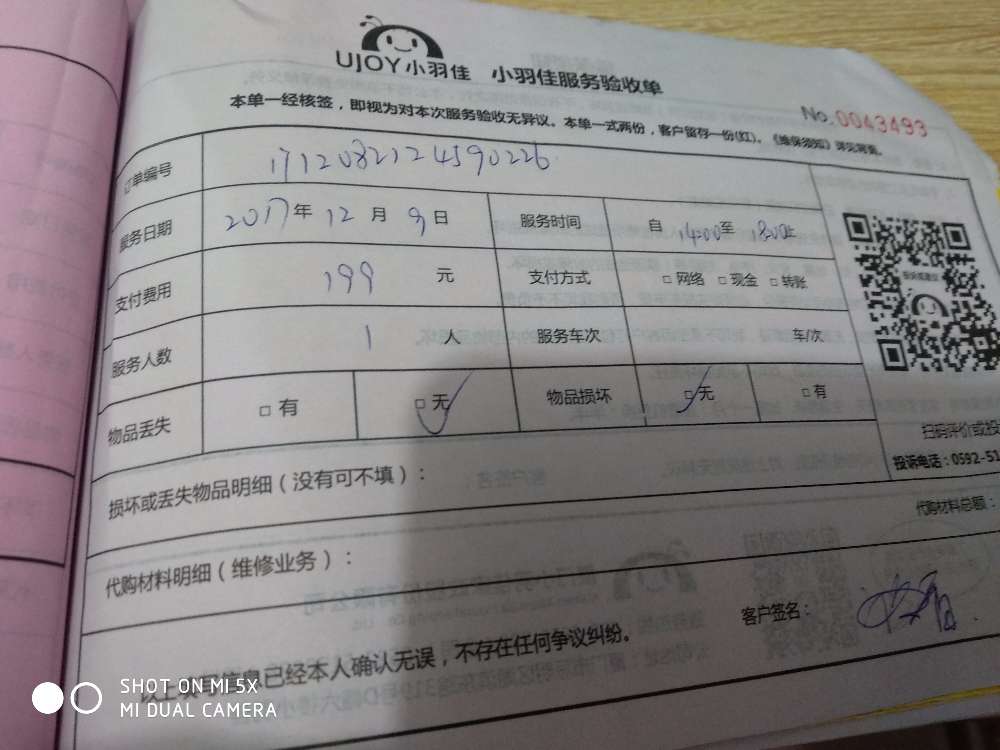 UJOY小羽佳 小羽佳服务验收单
No.0043493
本单一经核签，即视为对本次服务验收无异议。本单一式两份，客户留存一份(红)。《维保须知》详见背面。
订单编号 1712082124590226
服务日期 2017年 12月 9日 服务时间 自 14:00至 18:00止
支付费用 199 元 支付方式 □网络 □现金 □转账
服务人数 1 人 服务车次 车/次
物品丢失 □有 □无 物品损坏 □无 □有
扫码评价或投
投诉电话：0592-51
损坏或丢失物品明细（没有可不填）：
代购材料总额：
代购材料明细（维修业务）：
客户签名：
以上填写信息已经本人确认无误，不存在任何争议纠纷。
SHOT ON MI 5X
MI DUAL CAMERA